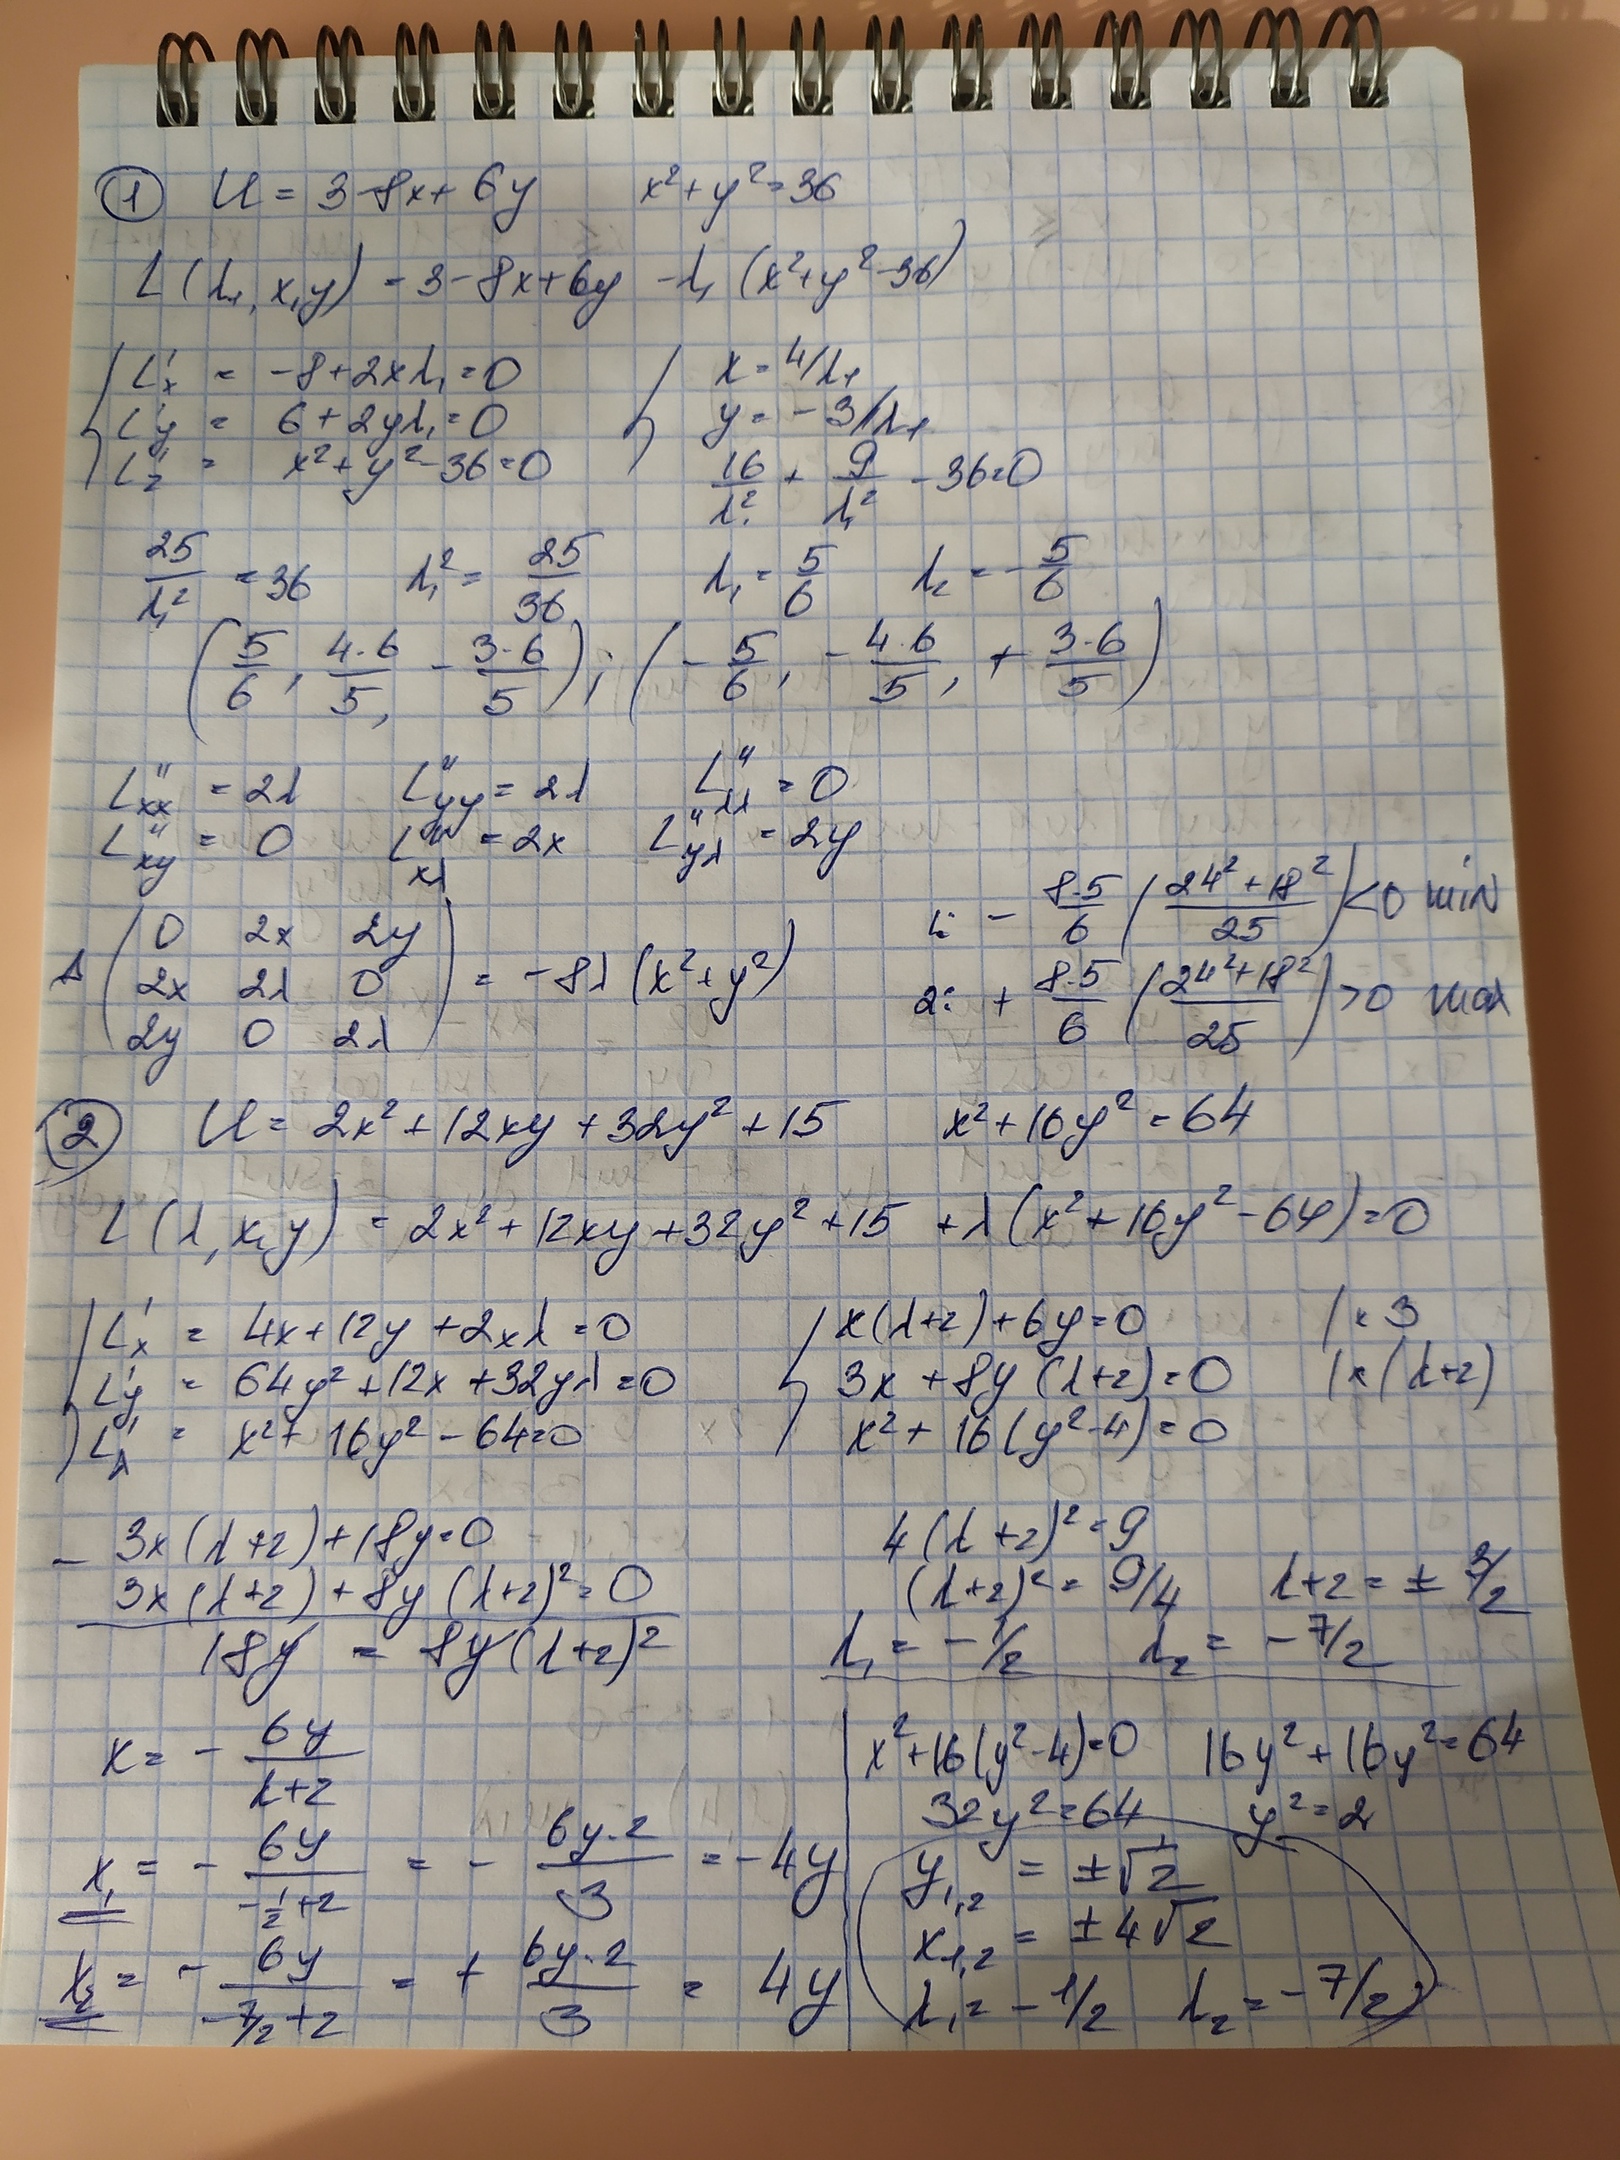 ① U = 3-8x+6y x²+y²=36
L(λ₁,x,y) = 3-8x+6y -λ₁(x²+y²-36)
L'x = -8+2xλ₁=0 x=4/λ₁
L'y = 6+2yλ₁=0 y=-3/λ₁
L'z = x²+y²-36=0 16/λ₁² + 9/λ₁² -36=0
25/λ₁² =36 λ₁² = 25/36 λ₁=5/6 λ₂=-5/6
(5/6, 4·6/5, -3·6/5); (-5/6, -4·6/5, +3·6/5)
L''xx = 2λ L''yy = 2λ L''λλ = 0
L''xy = 0 L''xλ = 2x L''yλ = 2y
Δ (0 2x 2y
2x 2λ 0
2y 0 2λ) = -8λ(x²+y²)
1: - 8·5/6 (24²+18²/25) <0 min
2: + 8·5/6 (24²+18²/25) >0 max
② U = 2x²+12xy+32y²+15 x²+16y²=64
L(λ,x,y) = 2x²+12xy+32y²+15 +λ(x²+16y²-64)=0
L'x = 4x+12y+2xλ=0 x(λ+2)+6y=0 |×3
L'y = 64y²+12x+32yλ=0 3x+8y(λ+2)=0 |×(λ+2)
L'λ = x²+16y²-64=0 x²+16(y²-4)=0
- 3x(λ+2)+18y=0 4(λ+2)²=9
3x(λ+2)+8y(λ+2)²=0 (λ+2)²=9/4 λ+2=±3/2
18y = 8y(λ+2)² λ₁=-1/2 λ₂=-7/2
x=- 6y/λ+2
x₁ = - 6y/-1/2+2 = - 6y·2/3 =-4y
x₂ = - 6y/-7/2+2 = + 6y·2/3 = 4y
x²+16(y²-4)=0 16y²+16y²=64
32y²=64 y²=2
y₁,₂ = ±√2
x₁,₂ = ±4√2
λ₁=-1/2 λ₂=-7/2